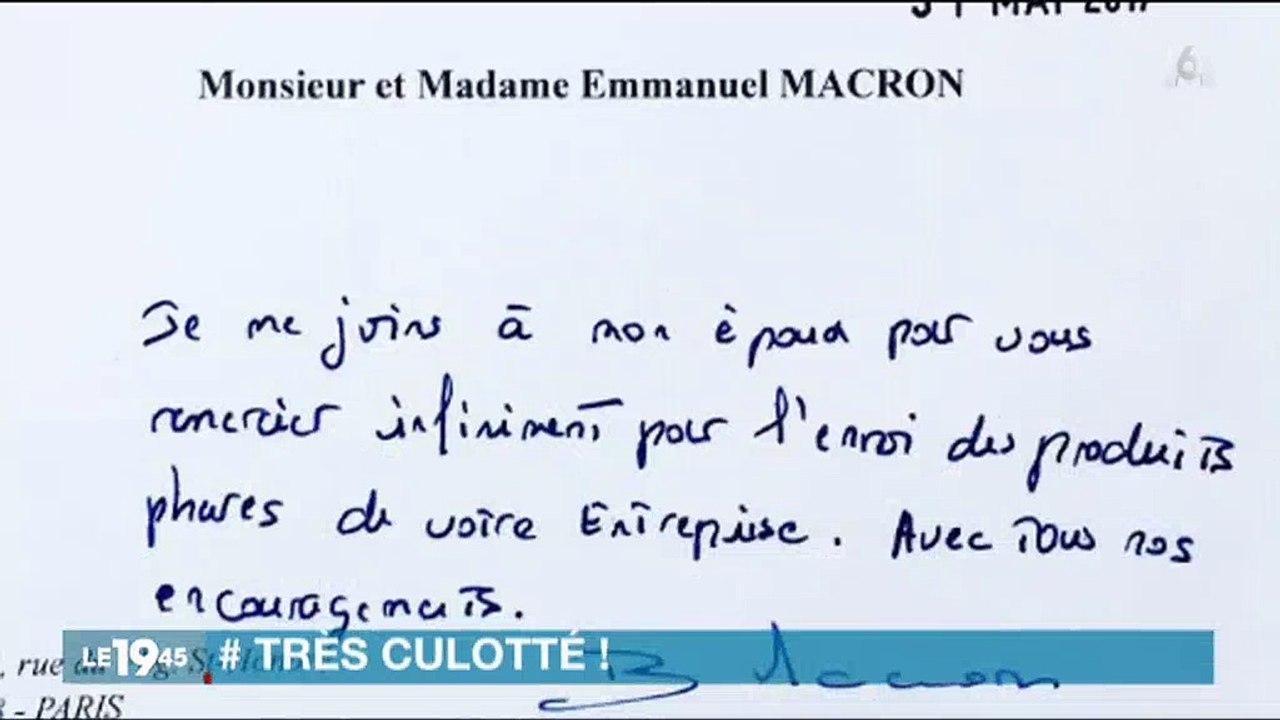 31 MAI 2017
6
Monsieur et Madame Emmanuel MACRON
Je me joins à mon époux pour vous
remercier infiniment pour l'envoi des produits
phares de votre Entreprise. Avec Tous nos
encouragements.
LE 1945 # TRÈS CULOTTÉ !
, rue du
B Macron
- PARIS